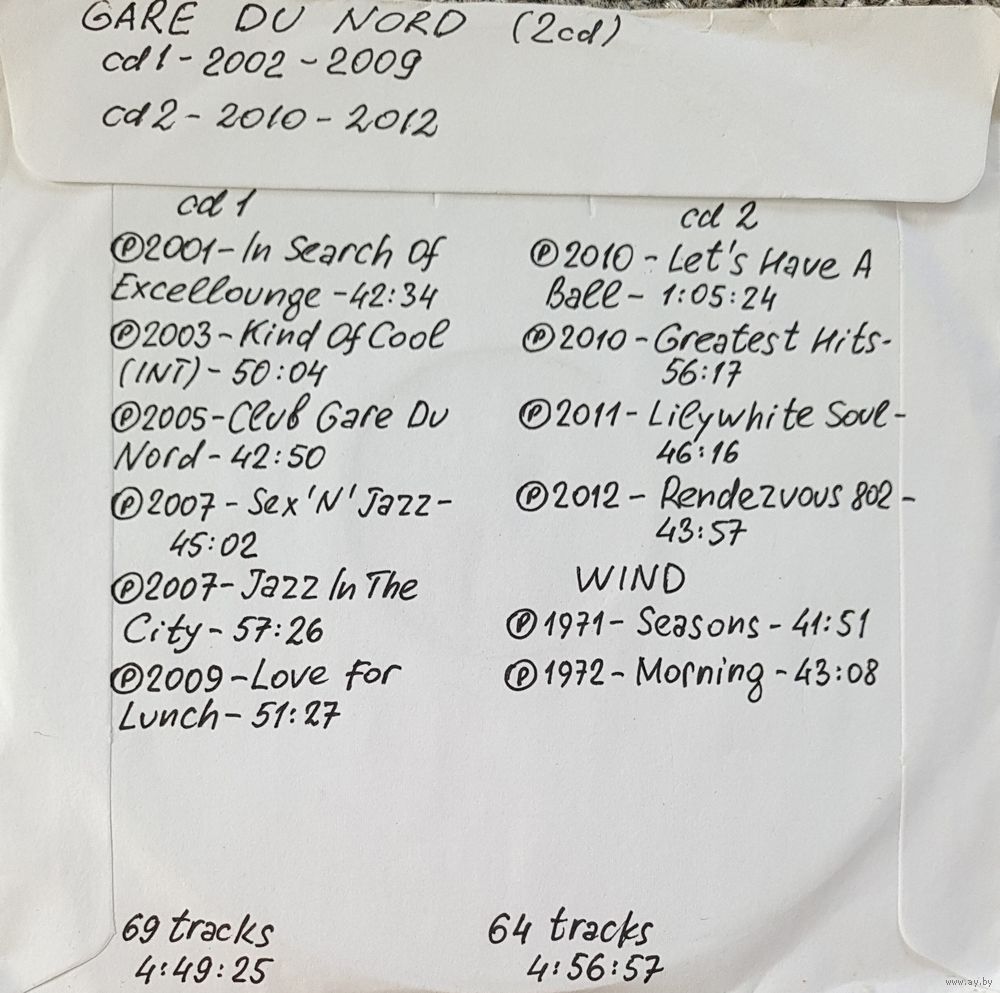 GARE DU NORD (2cd)
cd1-2002-2009
cd2-2010-2012
cd 1
Ⓟ2001-In Search Of
Excellounge-42:34
Ⓟ2003-Kind Of Cool
(INT)-50:04
Ⓟ2005-Club Gare Du
Nord-42:50
Ⓟ2007-Sex'N'Jazz-
45:02
Ⓟ2007-Jazz In The
City-57:26
Ⓟ2009-Love For
Lunch-51:27
69 tracks
4:49:25
cd 2
Ⓟ2010-Let's Have A
Ball-1:05:24
Ⓟ2010-Greatest Hits-
56:17
Ⓟ2011-Lilywhite Soul-
46:16
Ⓟ2012-Rendezvous 802-
43:57
WIND
Ⓟ1971-Seasons-41:51
Ⓟ1972-Morning-43:08
64 tracks
4:56:57
www.ay.by